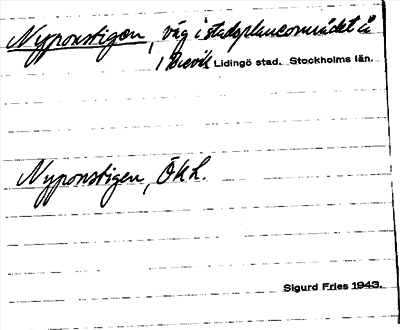 Nyponstigen, väg i stadsplaneområdet å
i Brevik Lidingö stad. Stockholms län.
Nyponstigen, ÖKL.
Sigurd Fries 1943.